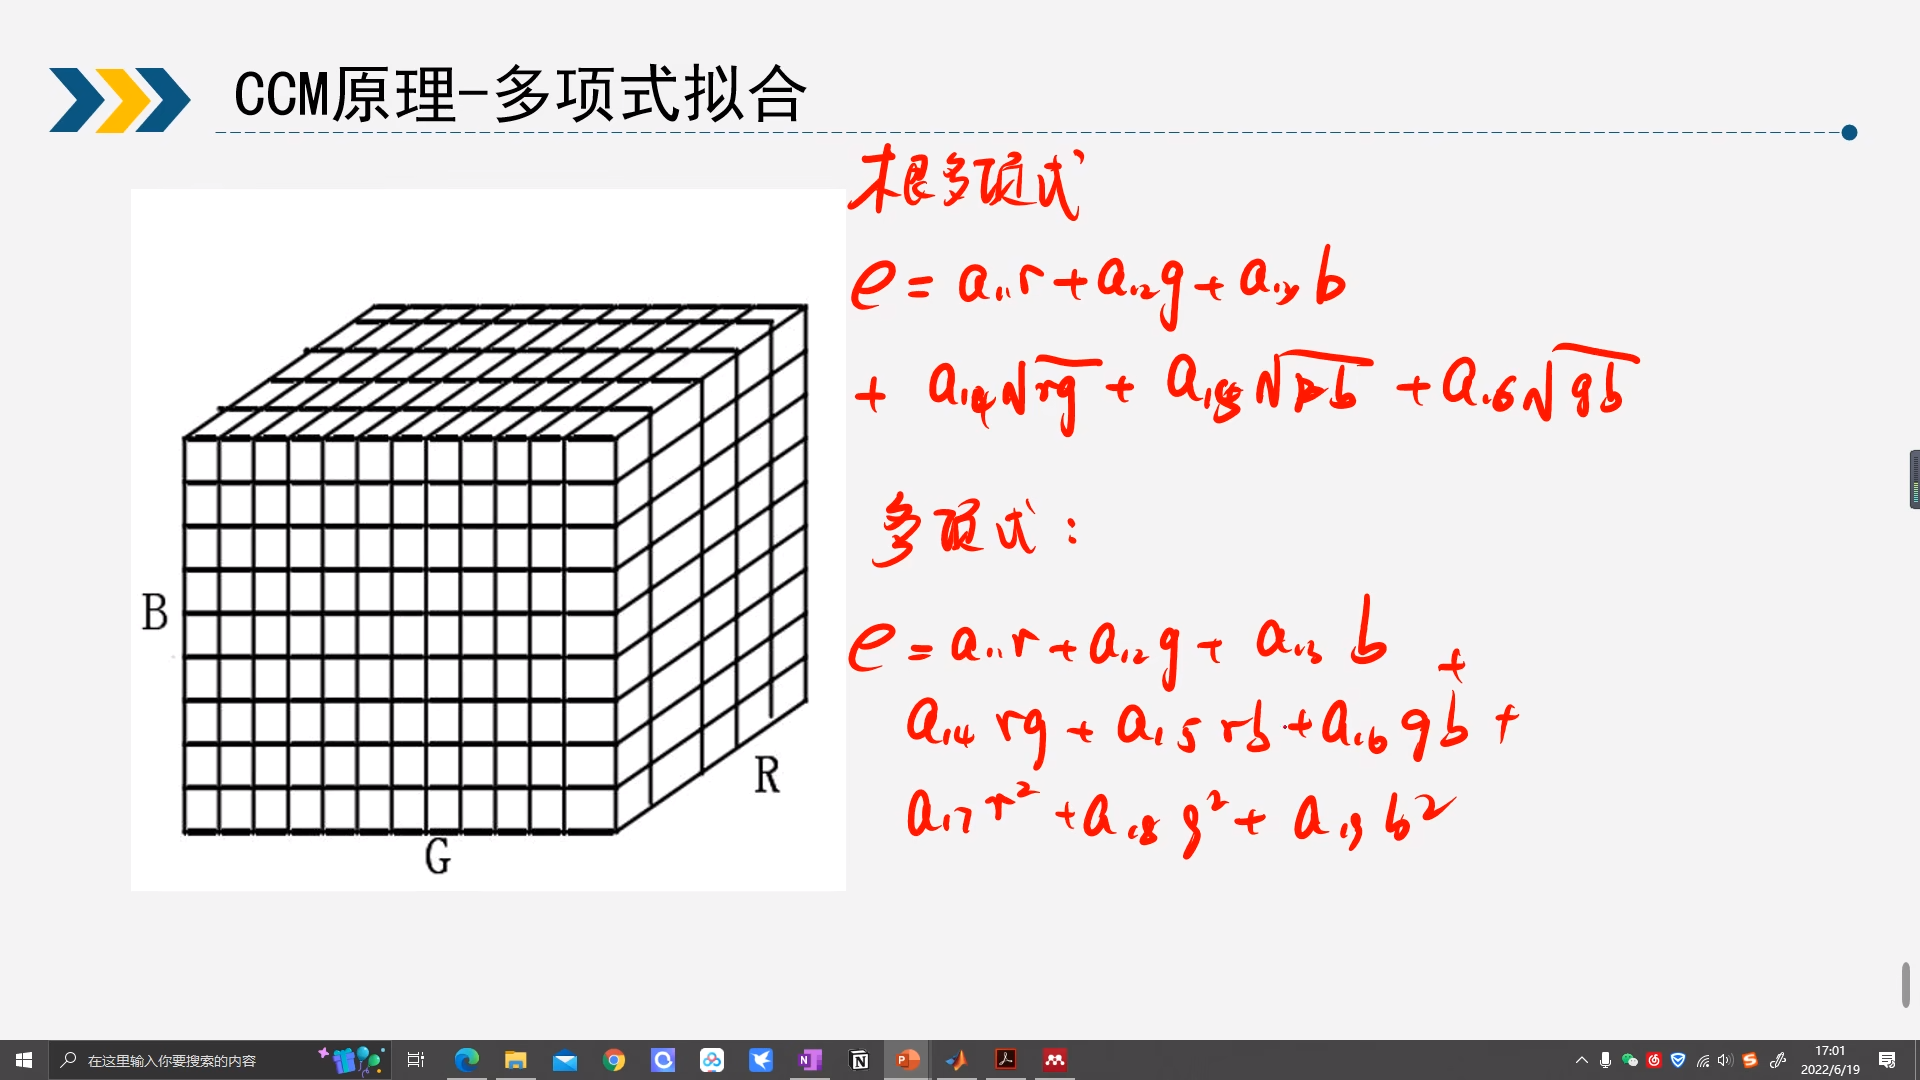 CCM原理-多项式拟合
根多项式
e = a₁₁r + a₁₂g + a₁₃b
+ a₁₄√rg + a₁₅√rb + a₁₆√gb
多项式:
e = a₁₁r + a₁₂g + a₁₃ b +
a₁₄ rg + a₁₅ rb + a₁₆ gb +
a₁₇ r² + a₁₈ g² + a₁₉ b²
B
R
G
在这里输入你要搜索的内容
17:01
2022/6/19